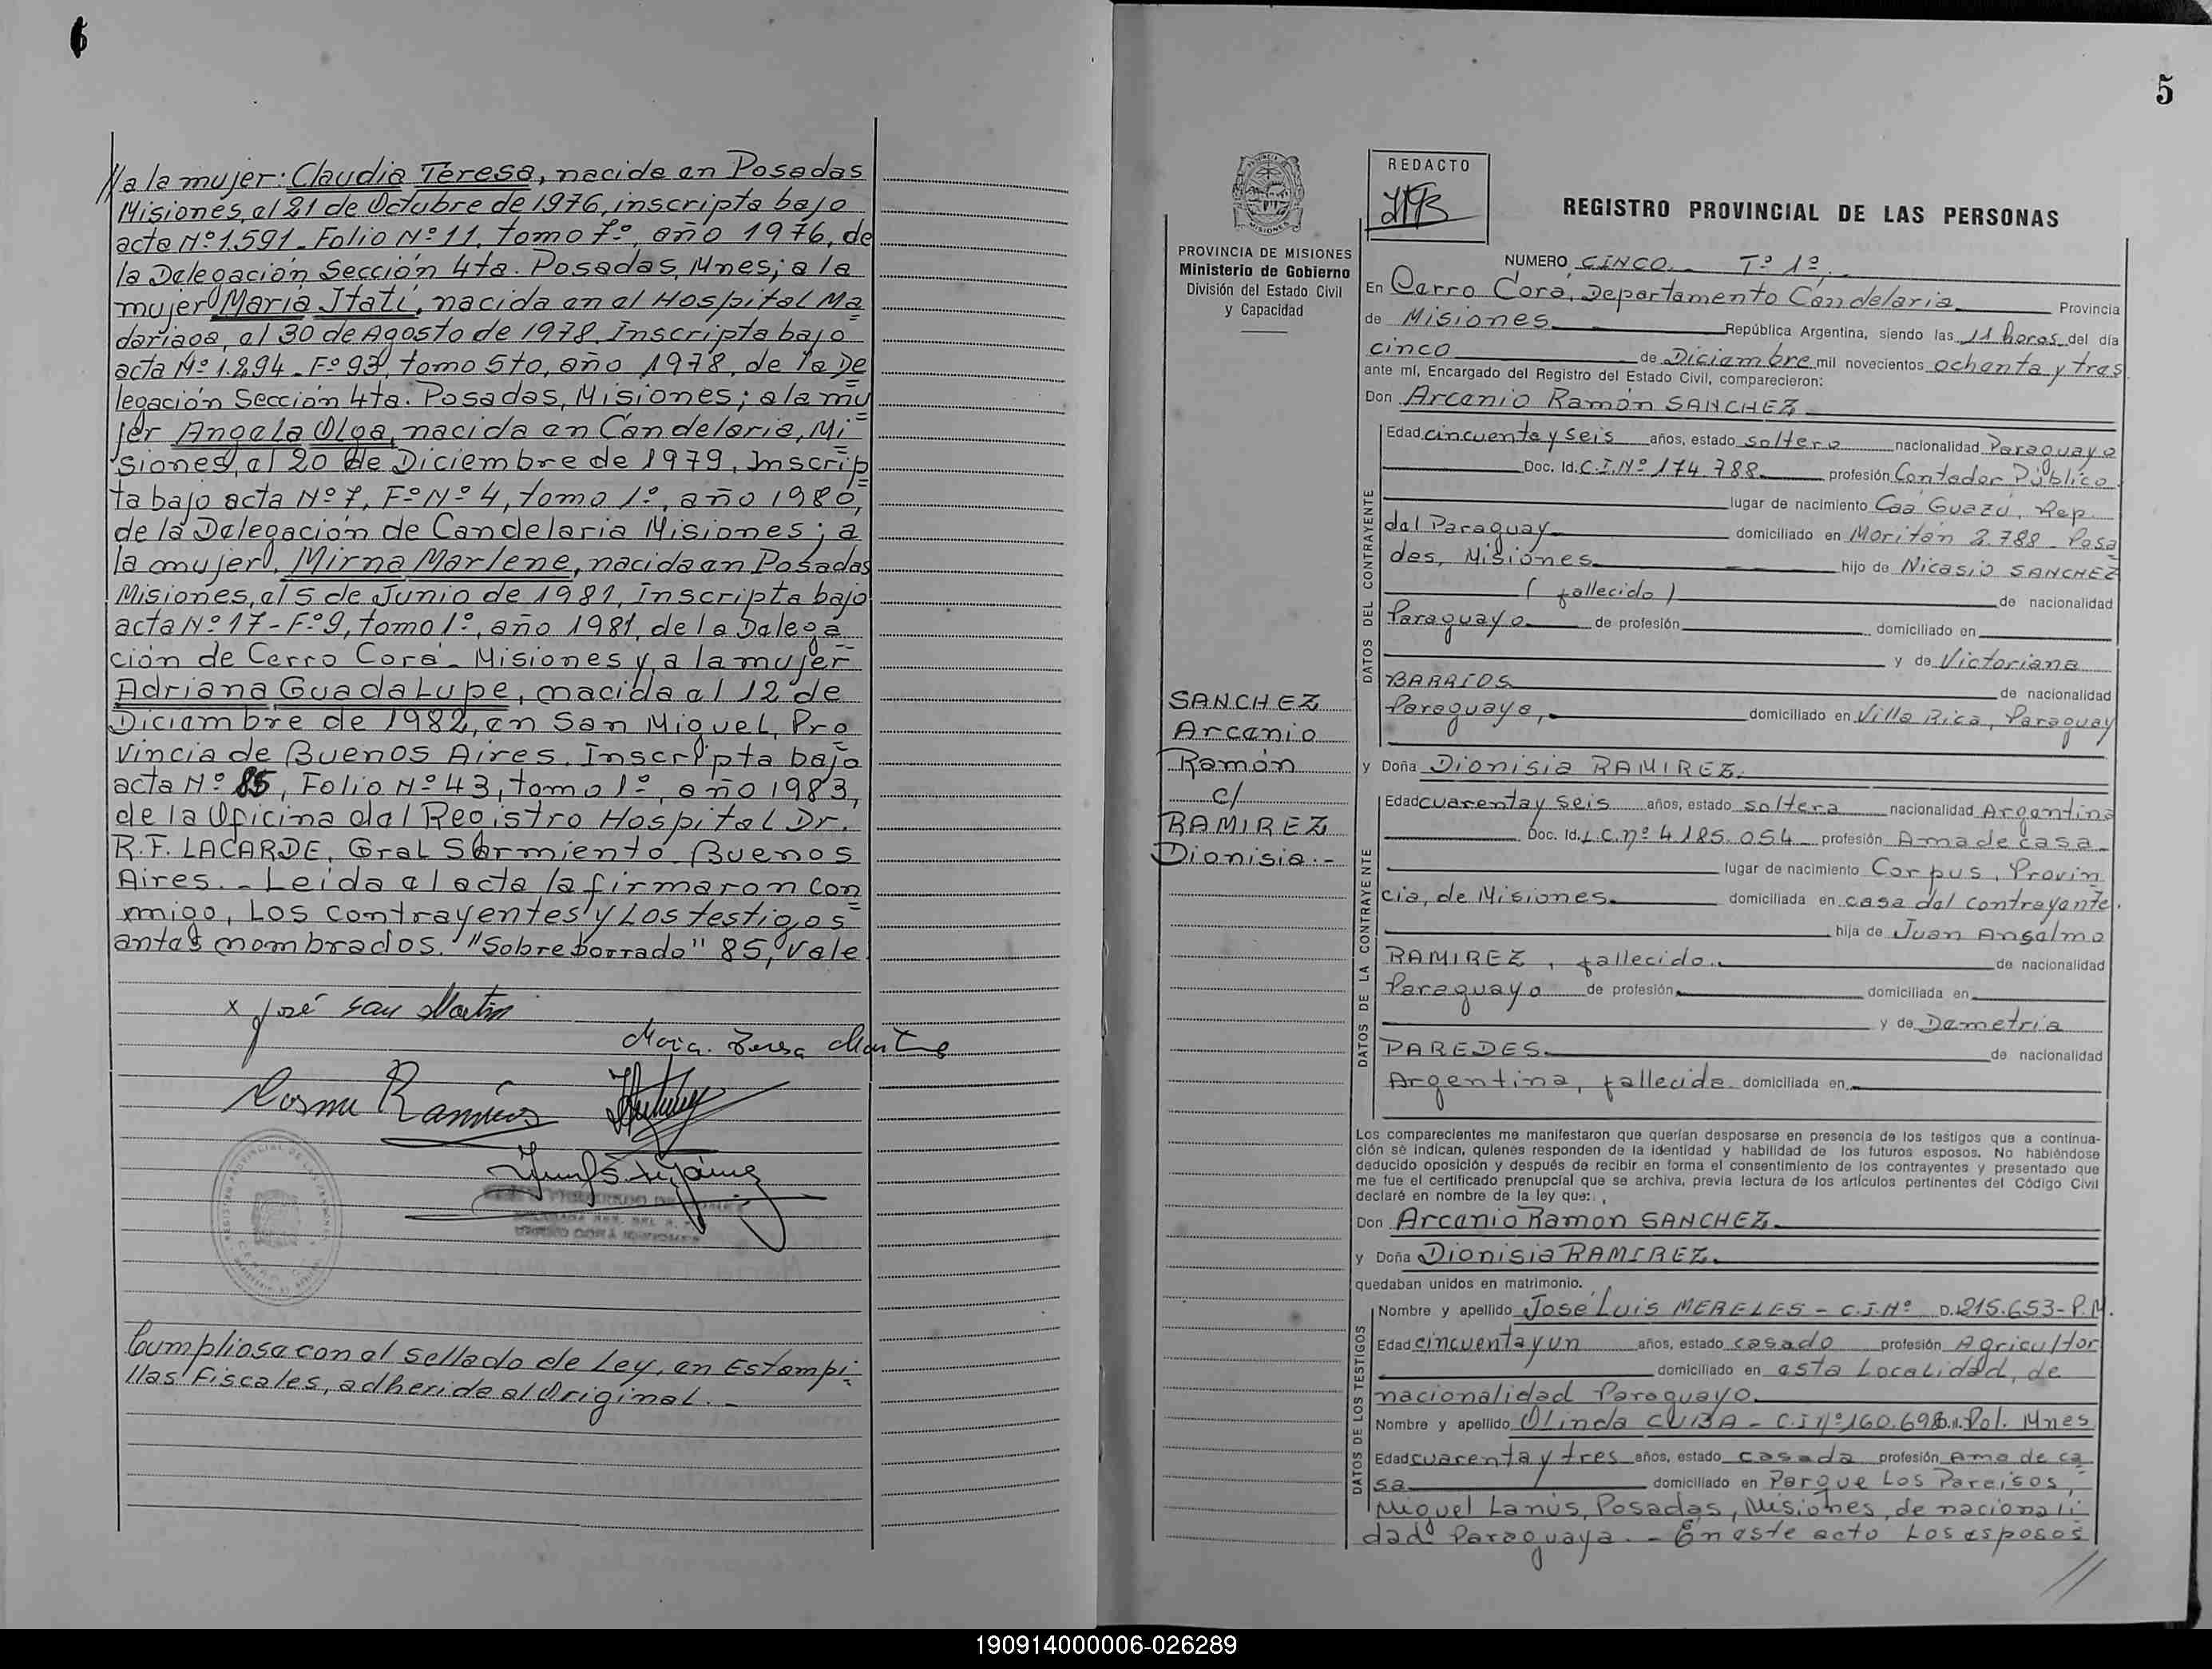 //a la mujer: Claudia Teresa, nacida en Posadas
Misiones, el 21 de Octubre de 1976, inscripta bajo
acta Nº 1.591 - Folio Nº 11, tomo 7º, año 1976, de
la Delegación Sección 4ta. Posadas, Mnes; a la
mujer María Itatí, nacida en el Hospital Ma
dariaga, el 30 de Agosto de 1978. Inscripta bajo
acta Nº 1.294 - Fº 93, tomo 5to, año 1978, de la De
legación Sección 4ta. Posadas, Misiones; a la mu
jer Angela Olga, nacida en Candelaria, Mi
siones, el 20 de Diciembre de 1979, Inscrip
ta bajo acta Nº 7, Fº Nº 4, tomo 1º, año 1980,
de la Delegación de Candelaria Misiones; a
la mujer, Mirna Marlene, nacida en Posadas
Misiones, el 5 de Junio de 1981, Inscripta bajo
acta Nº 17 - Fº 9, tomo 1º, año 1981, de la Delega
ción de Cerro Corá - Misiones y, a la mujer
Adriana Guadalupe, nacida el 12 de
Diciembre de 1982, en San Miguel, Pro
vincia de Buenos Aires. Inscripta bajo
acta Nº 85, Folio Nº 43, tomo 1º, año 1983,
de la Oficina del Registro Hospital Dr.
R.F. LACARDE, Gral Sarmiento - Buenos
Aires. - Leida el acta la firmaron con
migo, Los contrayentes y Los testigos
antes nombrados. "Sobre borrado" 85, Vale
x José San Martin
Cumpliose con el sellado de Ley, en Estampi
llas Fiscales, adherida al Original. -
5
REDACTO
REGISTRO PROVINCIAL DE LAS PERSONAS
PROVINCIA DE MISIONES
Ministerio de Gobierno
División del Estado Civil
y Capacidad
NUMERO CINCO - Tº 1º
En Cerro Corá, Departamento Candelaria Provincia
de Misiones República Argentina, siendo las 11 horas del día
cinco de Diciembre mil novecientos ochenta y tres
ante mí, Encargado del Registro del Estado Civil, comparecieron:
Don Arcenio Ramón SANCHEZ
DATOS DEL CONTRAYENTE
Edad cincuenta y seis años, estado soltero nacionalidad Paraguayo
Doc. Id. C.I. Nº 174.788 profesión Contador Público
lugar de nacimiento Caá Guazú, Rep.
del Paraguay domiciliado en Moritán 2.788 - Posa
das, Misiones hijo de Nicasio SANCHEZ
(fallecido) de nacionalidad
Paraguayo de profesión domiciliado en
y de Victoriana
BARRIOS de nacionalidad
Paraguaya, domiciliado en Villa Rica, Paraguay
SANCHEZ
Arcenio
Ramón
c/
RAMIREZ
Dionisia.-
y Doña Dionisia RAMIREZ
DATOS DE LA CONTRAYENTE
Edad cuarenta y seis años, estado soltera nacionalidad Argentina
Doc. Id. L.C. nº 4.185.054 profesión Ama de casa
lugar de nacimiento Corpus, Provin
cia, de Misiones domiciliada en casa del contrayente.
hija de Juan Anselmo
RAMIREZ, fallecido de nacionalidad
Paraguayo de profesión domiciliada en
y de Demetria
PAREDES de nacionalidad
Argentina, fallecida domiciliada en
Los comparecientes me manifestaron que querían desposarse en presencia de los testigos que a continua-
ción se indican, quienes responden de la identidad y habilidad de los futuros esposos. No habiéndose
deducido oposición y después de recibir en forma el consentimiento de los contrayentes y presentado que
me fue el certificado prenupcial que se archiva, previa lectura de los artículos pertinentes del Código Civil
declaré en nombre de la ley que:
Don Arcenio Ramon SANCHEZ
y Doña Dionisia RAMIREZ
quedaban unidos en matrimonio.
DATOS DE LOS TESTIGOS
Nombre y apellido José Luis MERELES - C.I. Nº D.215.653 - P.M.
Edad cincuenta y un años, estado casado profesión Agricultor
domiciliado en esta Localidad, de
nacionalidad Paraguayo
Nombre y apellido Olinda CUBA - C.I nº 160.698 Pol. Mnes
Edad cuarenta y tres años, estado casada profesión Ama de ca
sa domiciliado en Parque Los Paraisos,
Miguel Lanús, Posadas, Misiones, de nacionali
dad Paraguaya. - En este acto Los esposos
//
190914000006-026289